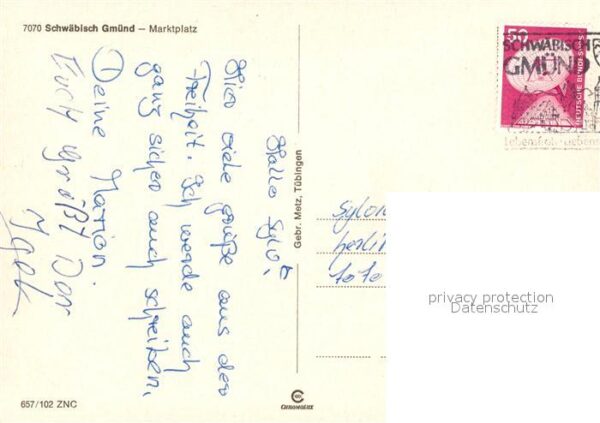 7070 Schwäbisch Gmünd – Marktplatz
Hallo Sylvi,
Hier viele grüße aus der
Freiheit. Ich werde auch
ganz sicher auch schreiben.
Deine Marion.
Euch grüßt Der
Igel
Gebr. Metz, Tübingen
50
DEUTSCHE BUNDESPOST
SCHWÄBISCH
GMÜND
berlin
657/102 ZNC
privacy protection
Datenschutz